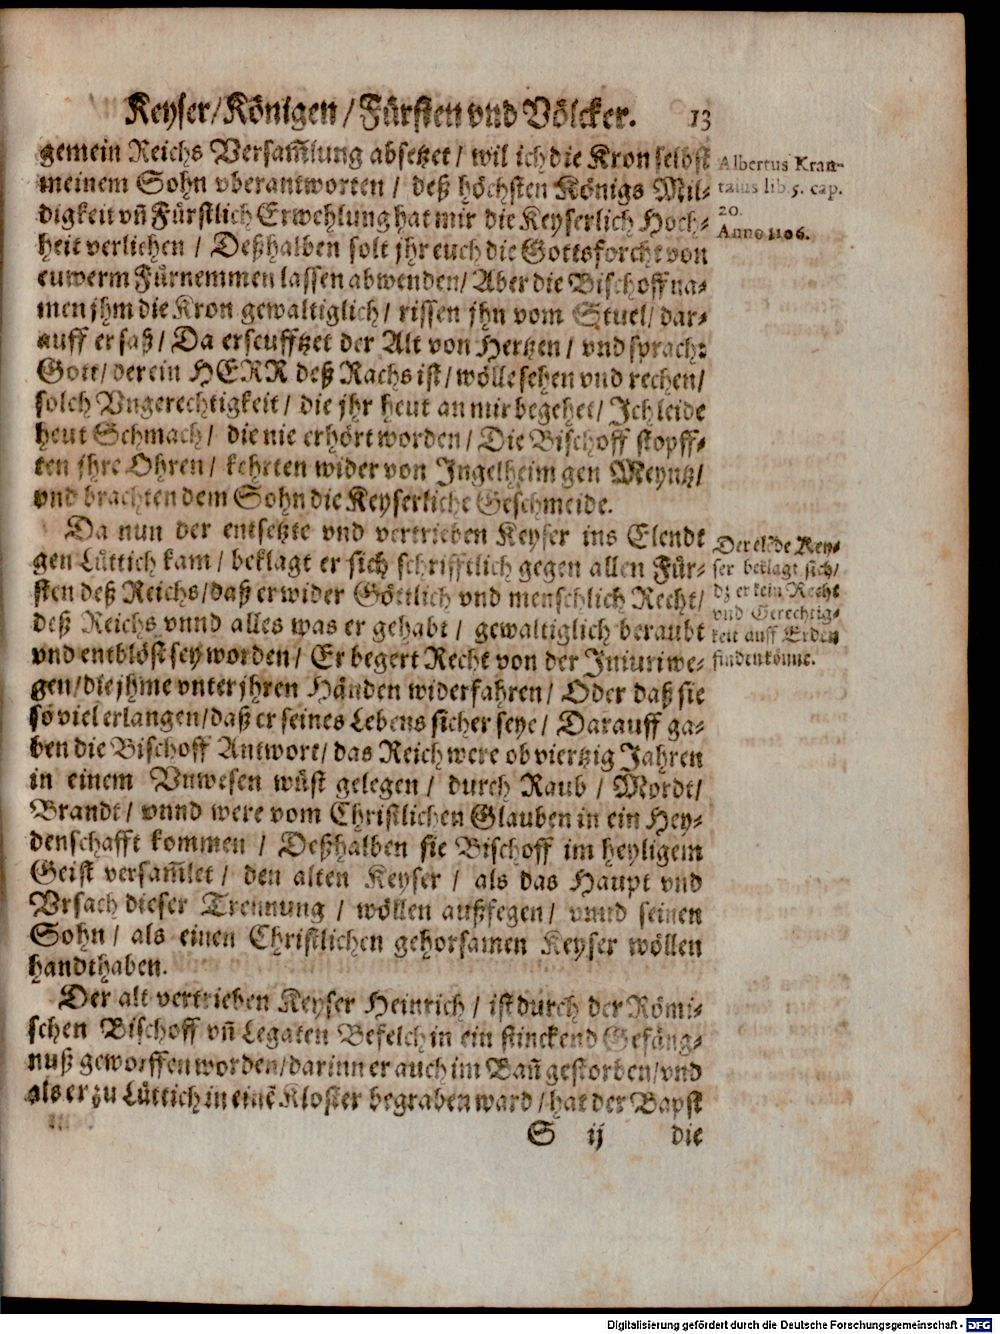 Keyser/Königen/Fürsten vnd Völcker. 13
gemein Reichs Versam̃lung absetzet/ wil ich die Kron selbst
meinem Sohn vberantworten/ deß höchsten Königs Mil-
digkeit vñ Fürstlich Erwehlung hat mir die Keyserlich Hoch-
heit verlichen/ Deßhalben solt jhr euch die Gottsforcht von
euwerm Fürnemmen lassen abwenden/ Aber die Bischoff na-
men jhm die Kron gewaltiglich/ rissen jhn vom Stuel/ dar-
auff er saß/ Da erseufftzet der Alt von Hertzen/ vnd sprach:
Gott/ der ein HERR deß Rachs ist/ wölle sehen vnd rechen/
solch Vngerechtigkeit/ die jhr heut an mir begehet/ Ich leide
heut Schmach/ die nie erhört worden/ Die Bischoff stopff-
ten jhre Ohren/ kehrten wider von Ingelheim gen Meyntz/
vnd brachten dem Sohn die Keyserliche Geschmeide.
Albertus Kran-
tzius lib. 5. cap.
20.
Anno 1106.
Da nun der entsetzte vnd vertrieben Keyser ins Elendt
gen Lüttich kam/ beklagt er sich schrifftlich gegen allen Für-
sten deß Reichs/ daß er wider Göttlich vnd menschlich Recht/
deß Reichs vnnd alles was er gehabt/ gewaltiglich beraubt
vnd entblöst sey worden/ Er begert Recht von der Iniuri we-
gen/ die jhme vnter jhren Händen widerfahren/ Oder daß sie
so viel erlangen/ daß er seines Lebens sicher seye/ Darauff ga-
ben die Bischoff Antwort/ das Reich were ob viertzig Jahren
in einem Vnwesen wüst gelegen/ durch Raub/ Mordt/
Brandt/ vnnd were vom Christlichen Glauben in ein Hey-
denschafft kommen/ Deßhalben sie Bischoff im heyligem
Geist versam̃let/ den alten Keyser/ als das Haupt vnd
Vrsach dieser Trennung/ wöllen außfegen/ vnnd seinen
Sohn/ als einen Christlichen gehorsamen Keyser wöllen
handthaben.
Der eldẽ Key-
ser beklagt sich/
dz er kein Recht
vnd Gerechtig-
keit auff Erden
finden könne.
Der alt vertrieben Keyser Heinrich/ ist durch der Römi-
schen Bischoff vñ Legaten Befelch in ein stinckend Gefäng-
nuß geworffen worden/ darinn er auch im Bañ gestorben/ vnd
als er zu Lüttich in einẽ Kloster begraben ward/ hat der Bapst
S ij die
Digitalisierung gefördert durch die Deutsche Forschungsgemeinschaft - DFG